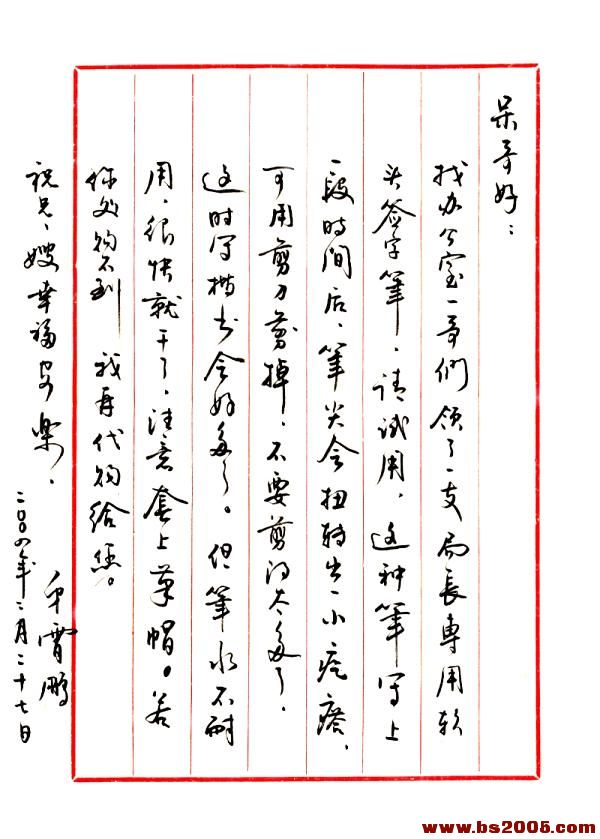 呆哥好：
找办公室一哥們领了一支局長専用软
头签字筆，请试用，这种筆写上
一段時间后，筆尖会扭转出一小疙瘩，
可用剪刀剪掉，不要剪得太多了，
这时写楷书会好多了。但筆水不耐
用，很快就干了，注意套上筆帽。若
你处购不到 我再代购给您。
祝兄、嫂幸福安樂，
霄鹏
二〇〇四年二月二十七日
www.bs2005.com